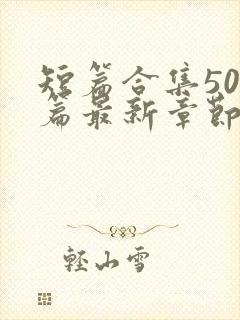 短篇合集50
篇最新章節
輕山雪